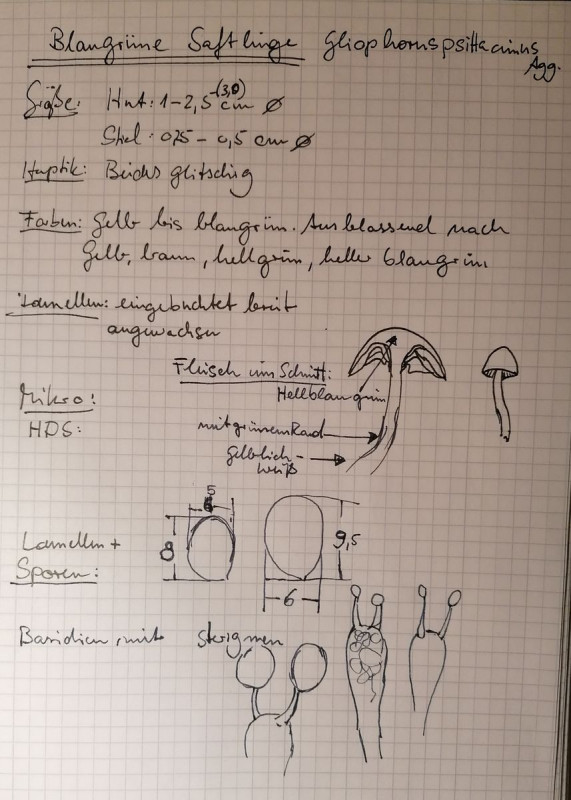 Blaugrüne Saftlinge Gliophorus psittacinus
Agg.
Größe: Hut: 1-2,5-(3,0) cm Ø
Stiel: 0,25 - 0,5 cm Ø
Haptik: Beides glitschig
Farben: Gelb bis blaugrün. Ausblassend nach
Gelb, braun, hellgrün, heller blaugrün.
Lamellen: eingebuchtet breit
angewachsen
Fleisch im Schnitt:
Hellblaugrün
Mikro:
HDS:
mit grünem Rand
gelblich-
weiß
5
8
9,5
6
Lamellen +
Sporen:
Basidien mit Sterigmen